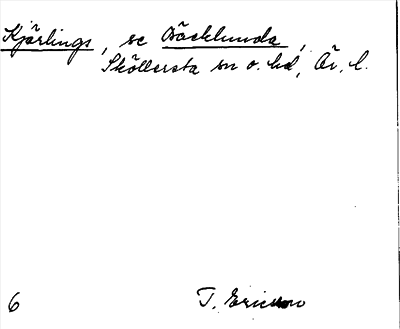 Kjärlings, se Bäcklunda,
Sköllersta sn o. hd, Ör. l.
6 T. Ericsson